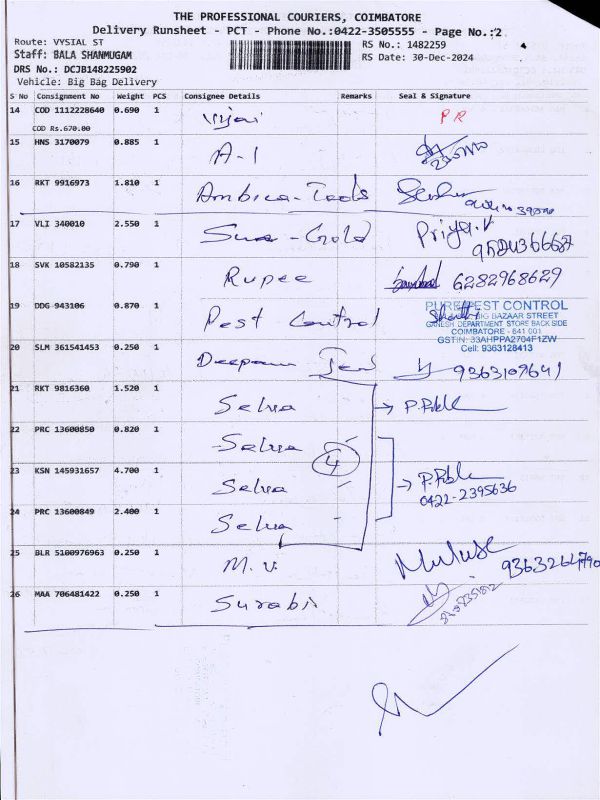 THE PROFESSIONAL COURIERS, COIMBATORE
Delivery Runsheet - PCT - Phone No.:0422-3505555 - Page No.:2
Route: VYSIAL ST RS No.: 1482259
Staff: BALA SHANMUGAM RS Date: 30-Dec-2024
DRS No.: DCJB148225902
Vehicle: Big Bag Delivery
S No Consignment No Weight PCS Consignee Details Remarks Seal & Signature
14 COD 1112228640 0.690 1 Vijai PR
COD Rs.670.00
15 HNS 3170079 0.885 1 A-1
16 RKT 9916973 1.810 1 Ambica-Tools
17 VLI 340010 2.550 1 Sun-Gold Priya.V
18 SVK 10582135 0.790 1 Rupee 6282968629
19 DDG 943106 0.870 1 Pest Control
PURE PEST CONTROL
BIG BAZAAR STREET
GANESH DEPARTMENT STORE BACK SIDE
COIMBATORE - 641 001
GSTIN: 33AHPPA2704F1ZW
Cell: 9363128413
20 SLM 361541453 0.250 1 Deepam 9363109641
21 RKT 9816360 1.520 1 Selva
22 PRC 13600850 0.820 1 Selva
4
23 KSN 145931657 4.700 1 Selva
0422-2395636
24 PRC 13600849 2.400 1 Selva
25 BLR 5100976963 0.250 1 M.V.
26 MAA 706481422 0.250 1 Surabi